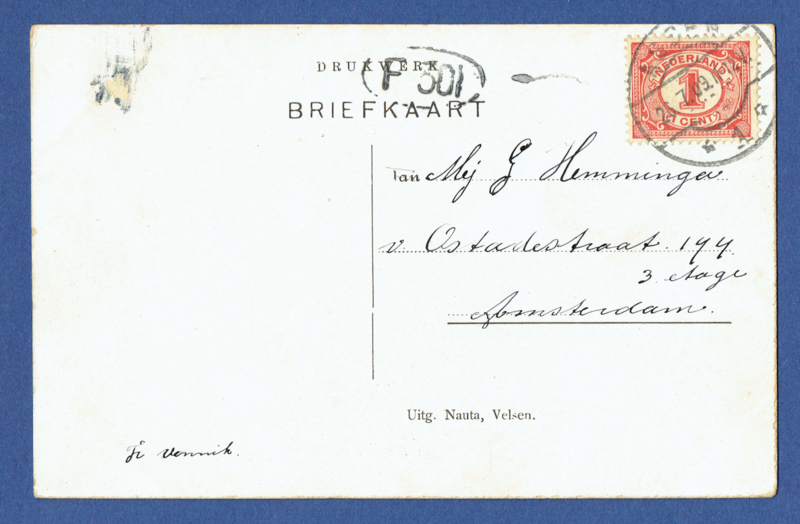 DRUKWERK
F 301
BRIEFKAART
NEDERLAND
1
CENT
7.09
Aan Mej G Hemminga
v. Ostadestraat 199
3 etage
Amsterdam.
Uitg. Nauta, Velsen.
Vennik.